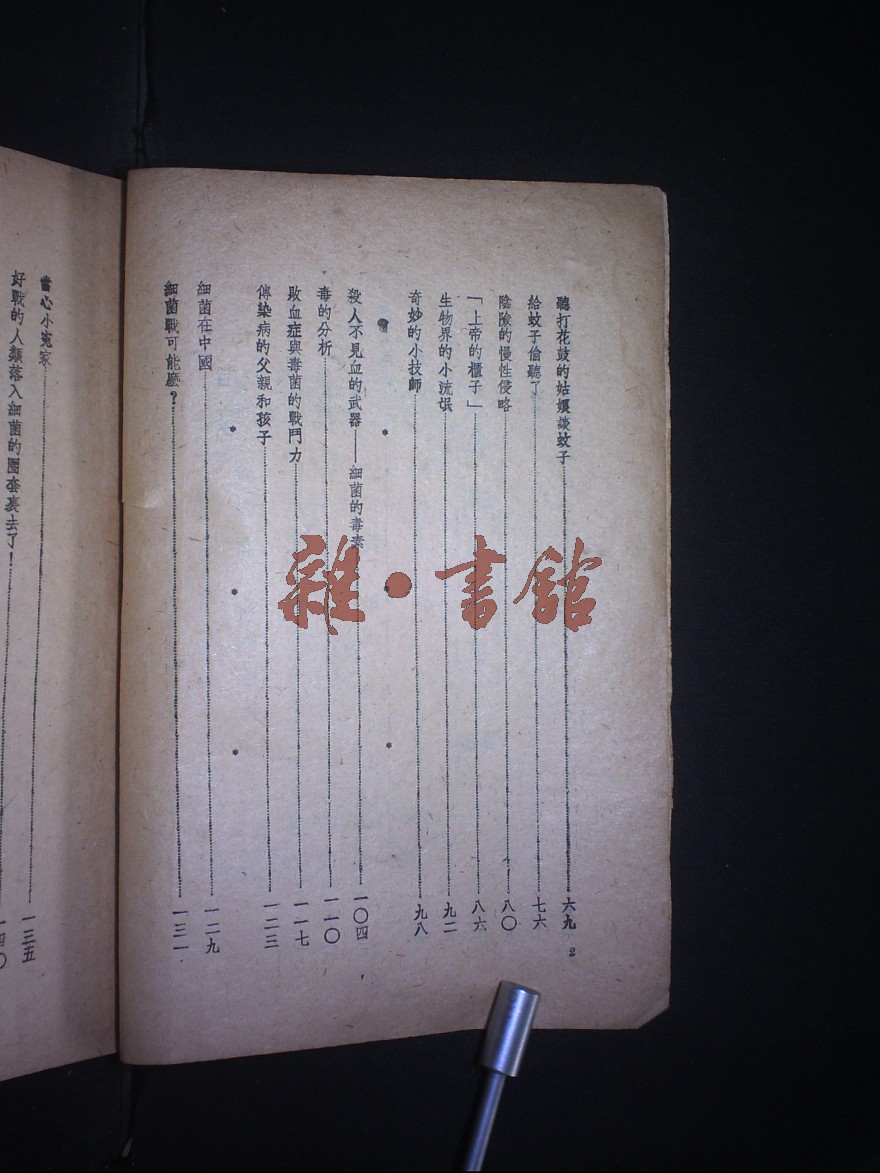 聽打花鼓的姑娘談蚊子………六九
給蚊子偷聽了………七六
陰險的慢性侵略………八〇
「上帝的櫃子」………八六
生物界的小流氓………九二
奇妙的小技師………九八
* * *
殺人不見血的武器——細菌的毒素………一〇四
毒的分析………一一〇
敗血症與毒菌的戰鬥力………一一七
傳染病的父親和孩子………一二三
* * *
細菌在中國………一二九
細菌戰可能麼?………一三一
2
當心小冤家………一三五
好戰的人類落入細菌的圈套裏去了!………一四〇
雜·書館